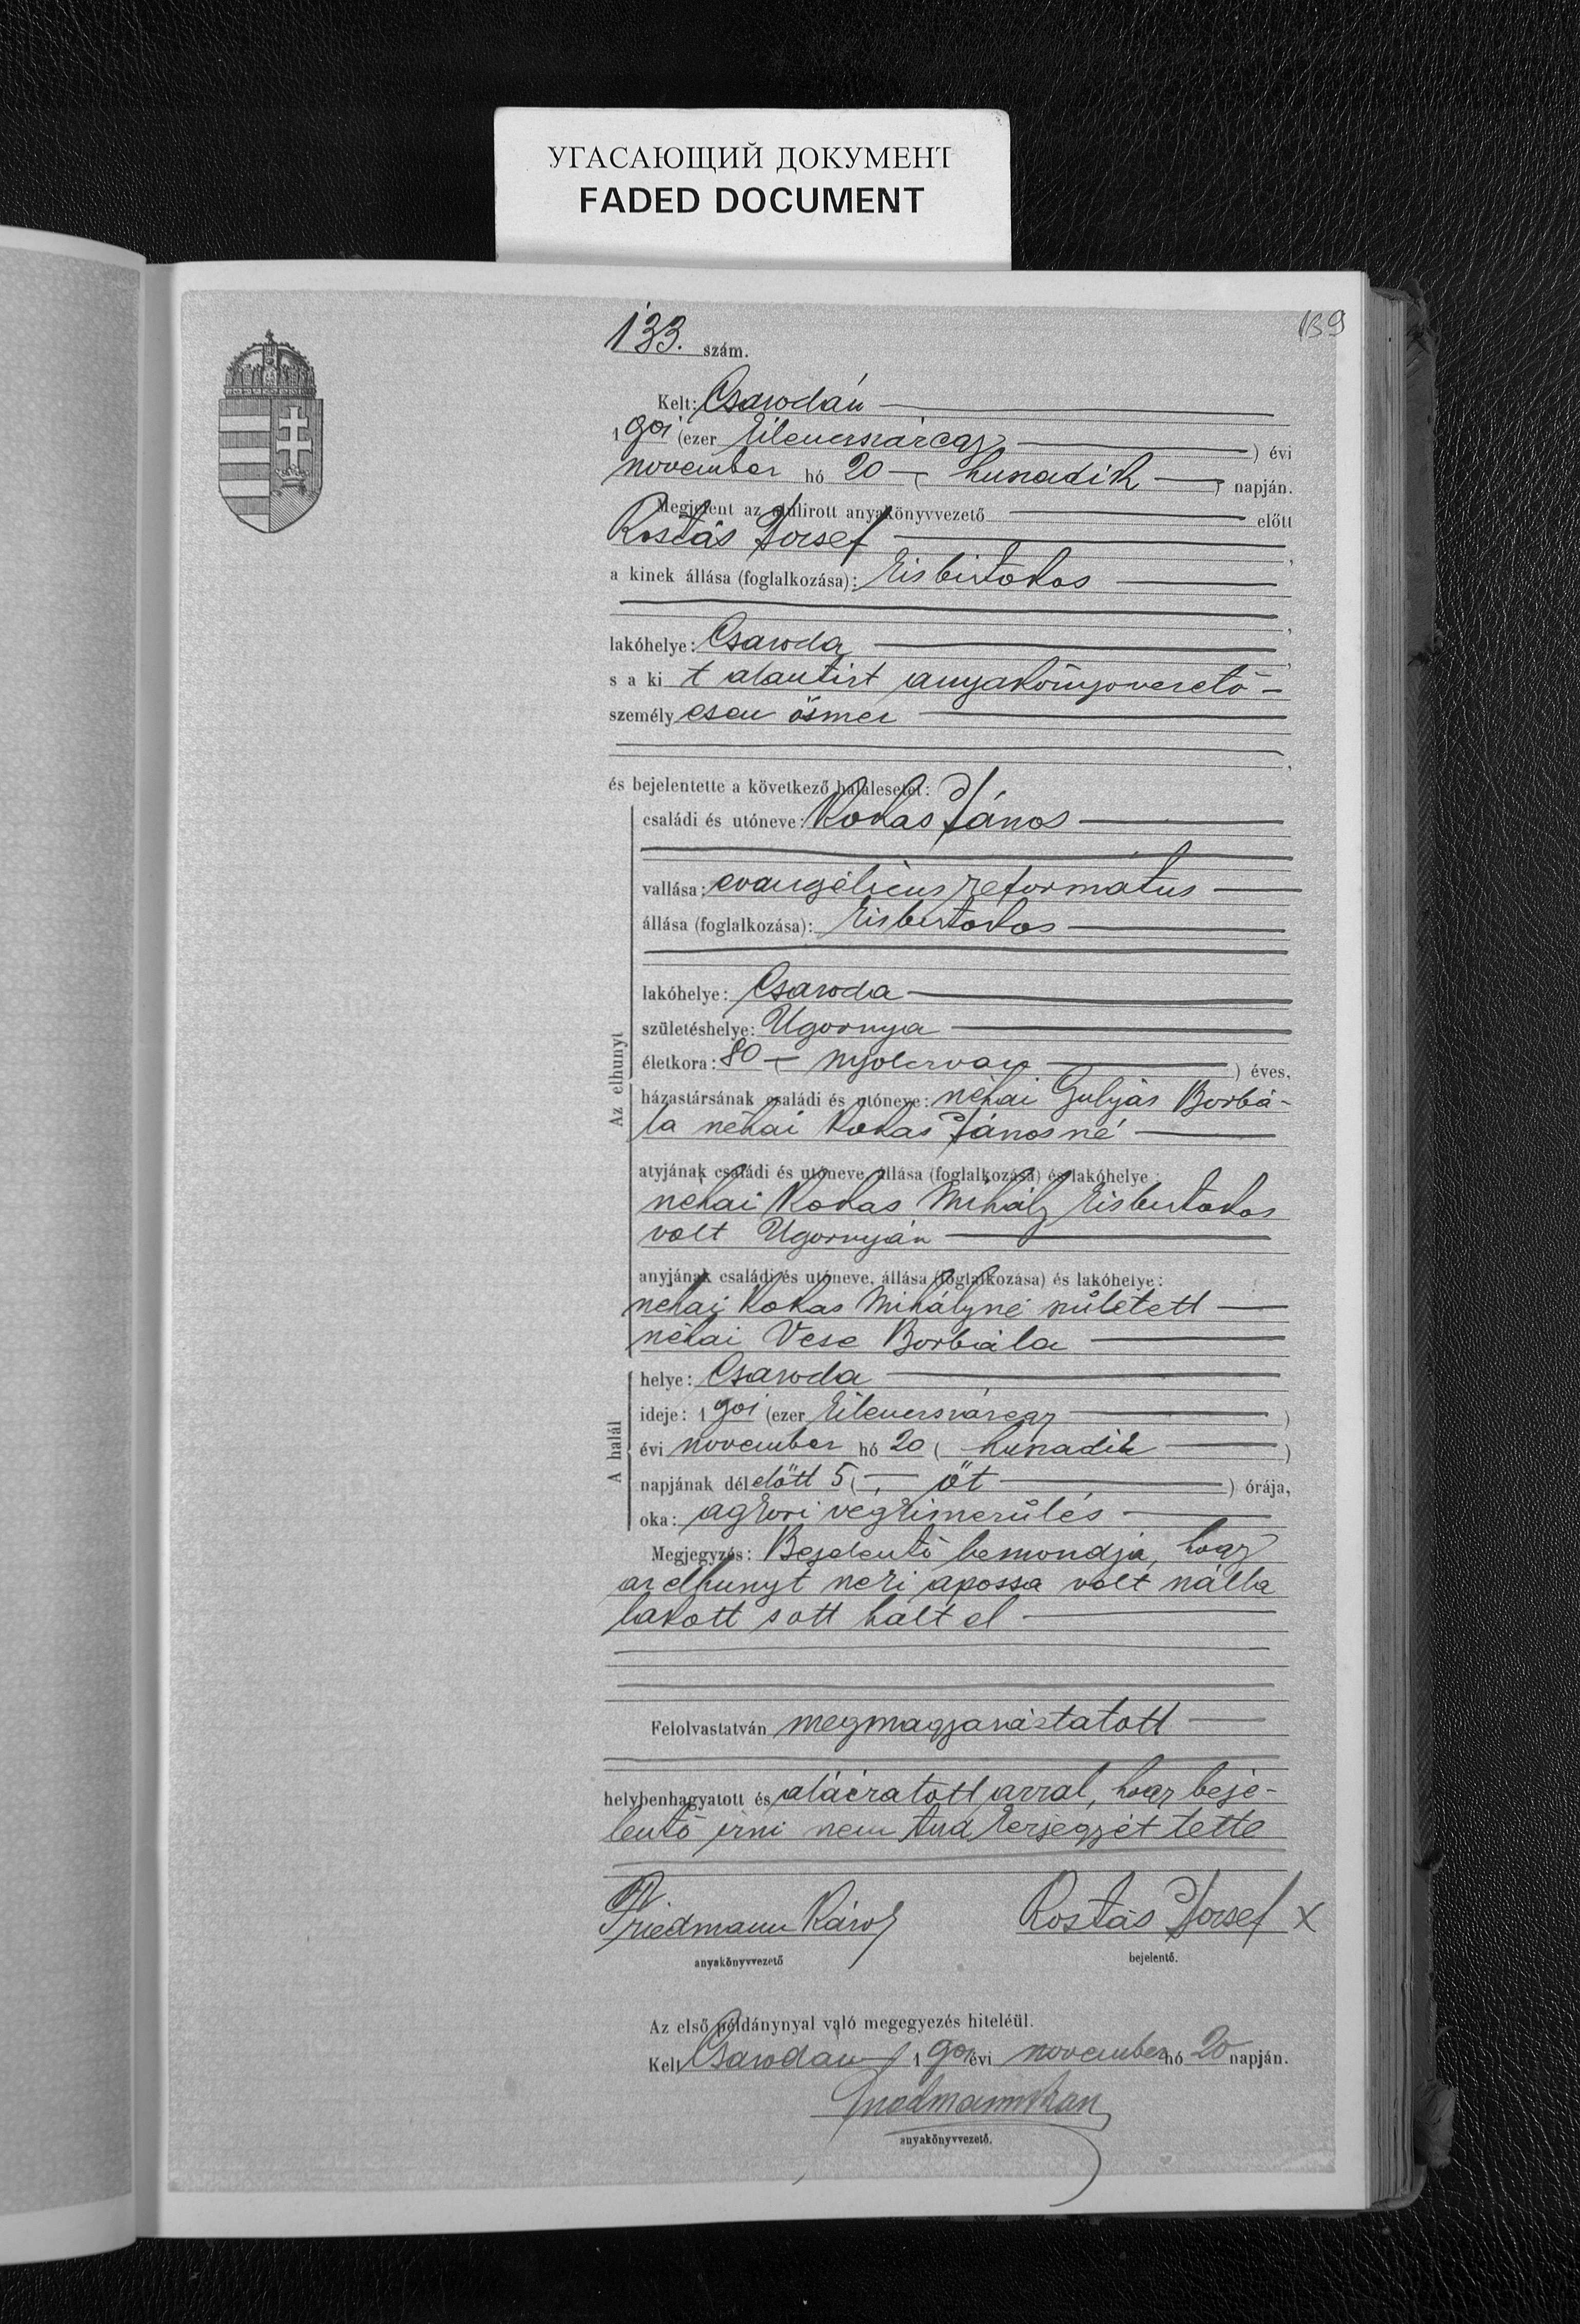 УГАСАЮЩИЙ ДОКУМЕНТ
FADED DOCUMENT
139
133. szám.
Kelt: Csarodán
1901 (ezer kilencszázegy) évi
november hó 20 (huszadik) napján.
Megjelent az alulirott anyakönyvvezető előtt
Rostás József,
a kinek állása (foglalkozása): kisbirtokos
lakóhelye: Csaroda,
s a kit alantirt anyakönyvvezető
személyesen ösmer,
és bejelentette a következő halálesetet:
Az elhunyt
családi és utóneve: Kokas János
vallása: evangélicus református
állása (foglalkozása): kisbirtokos
lakóhelye: Csaroda
születéshelye: Ugornya
életkora: 80 (nyolczvan) éves,
házastársának családi és utóneve: néhai Gulyás Borbá-
la néhai Kokas Jánosné
atyjának családi és utóneve, állása (foglalkozása) és lakóhelye:
néhai Kokas Mihály kisbirtokos
volt Ugornyán
anyjának családi és utóneve, állása (foglalkozása) és lakóhelye:
néhai Kokas Mihályné született
néhai Vese Borbála
A halál
helye: Csaroda
ideje: 1901 (ezer kilenczszázegy)
évi november hó 20 (huszadik)
napjának délelőtt 5 (öt) órája,
oka: agkori végkimerülés
Megjegyzés: Bejelentő bemondja, hogy
az elhunyt neki apossa volt nálla
lakott s ott halt el
Felolvastatván megmagyaráztatott
helybenhagyatott és aláiratott azzal, hogy beje-
lentő irni nem tud kézjegyét tette
Friedmann Károly Rostás József x
anyakönyvvezető bejelentő.
Az első példánynyal való megegyezés hiteléül.
Kelt Csarodán 1901 évi november hó 20 napján.
anyakönyvvezető.